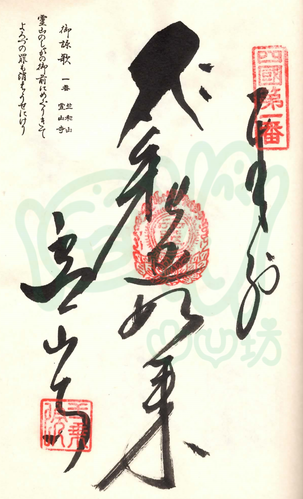 四國第一番
奉拝
釈迦如来
霊山寺
御詠歌 一番 竺和山 霊山寺
霊山のしゃかの御前にめぐりきて
よろづの罪も消えうせにけり